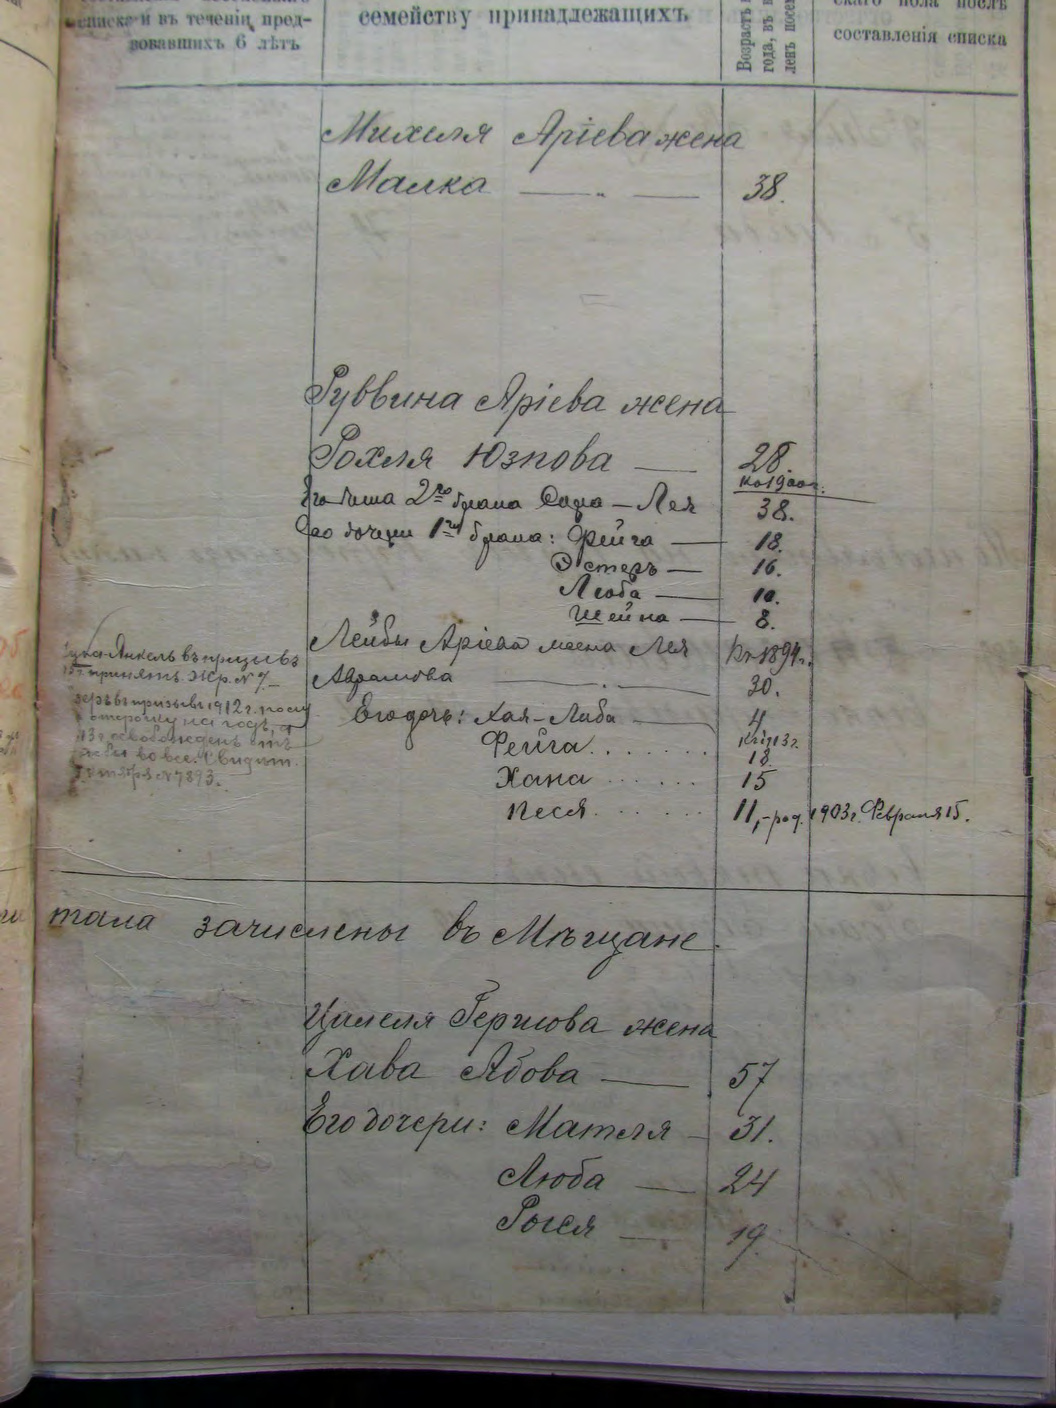 списке и въ теченіи пред-
вовавшихъ 6 лѣтъ
семейству принадлежащихъ
Возрастъ
года, въ
ленъ посем
скаго пола послѣ
составленія списка
Михеля Аріева жена
Малка — „ — 38.
Руввина Аріева жена
Рохля Юзпова — 28.
Къ 1900 г.
Его жена 2го брака Сора-Лея 38.
Его дочери 1го брака: Фейга — 18.
Эстеръ — 16.
Люба — 10.
Шейна — 8.
Лейбы Аріева жена Лея Къ 1894 г.
Аврамова — 30.
Его дочь: Хая-Либа — 4
Къ 1913 г.
Фейга . . . . . . . 18
Хана . . . . . . 15
Песя . . . . . . 11, -род. 1903 г. Февраля 15.
Янкель въ призывъ
принятъ. Жр. № 7.
въ призывѣ 1912 г. полу
отсрочку на годъ, а
13 г. освобожденъ отъ
Свидѣт.
№ 7893.
тала зачислены въ Мѣщане.
Цалеля Гершова жена
Хава Абова — 57
Его дочери: Матля — 31.
Люба — 24
Рося — 19.